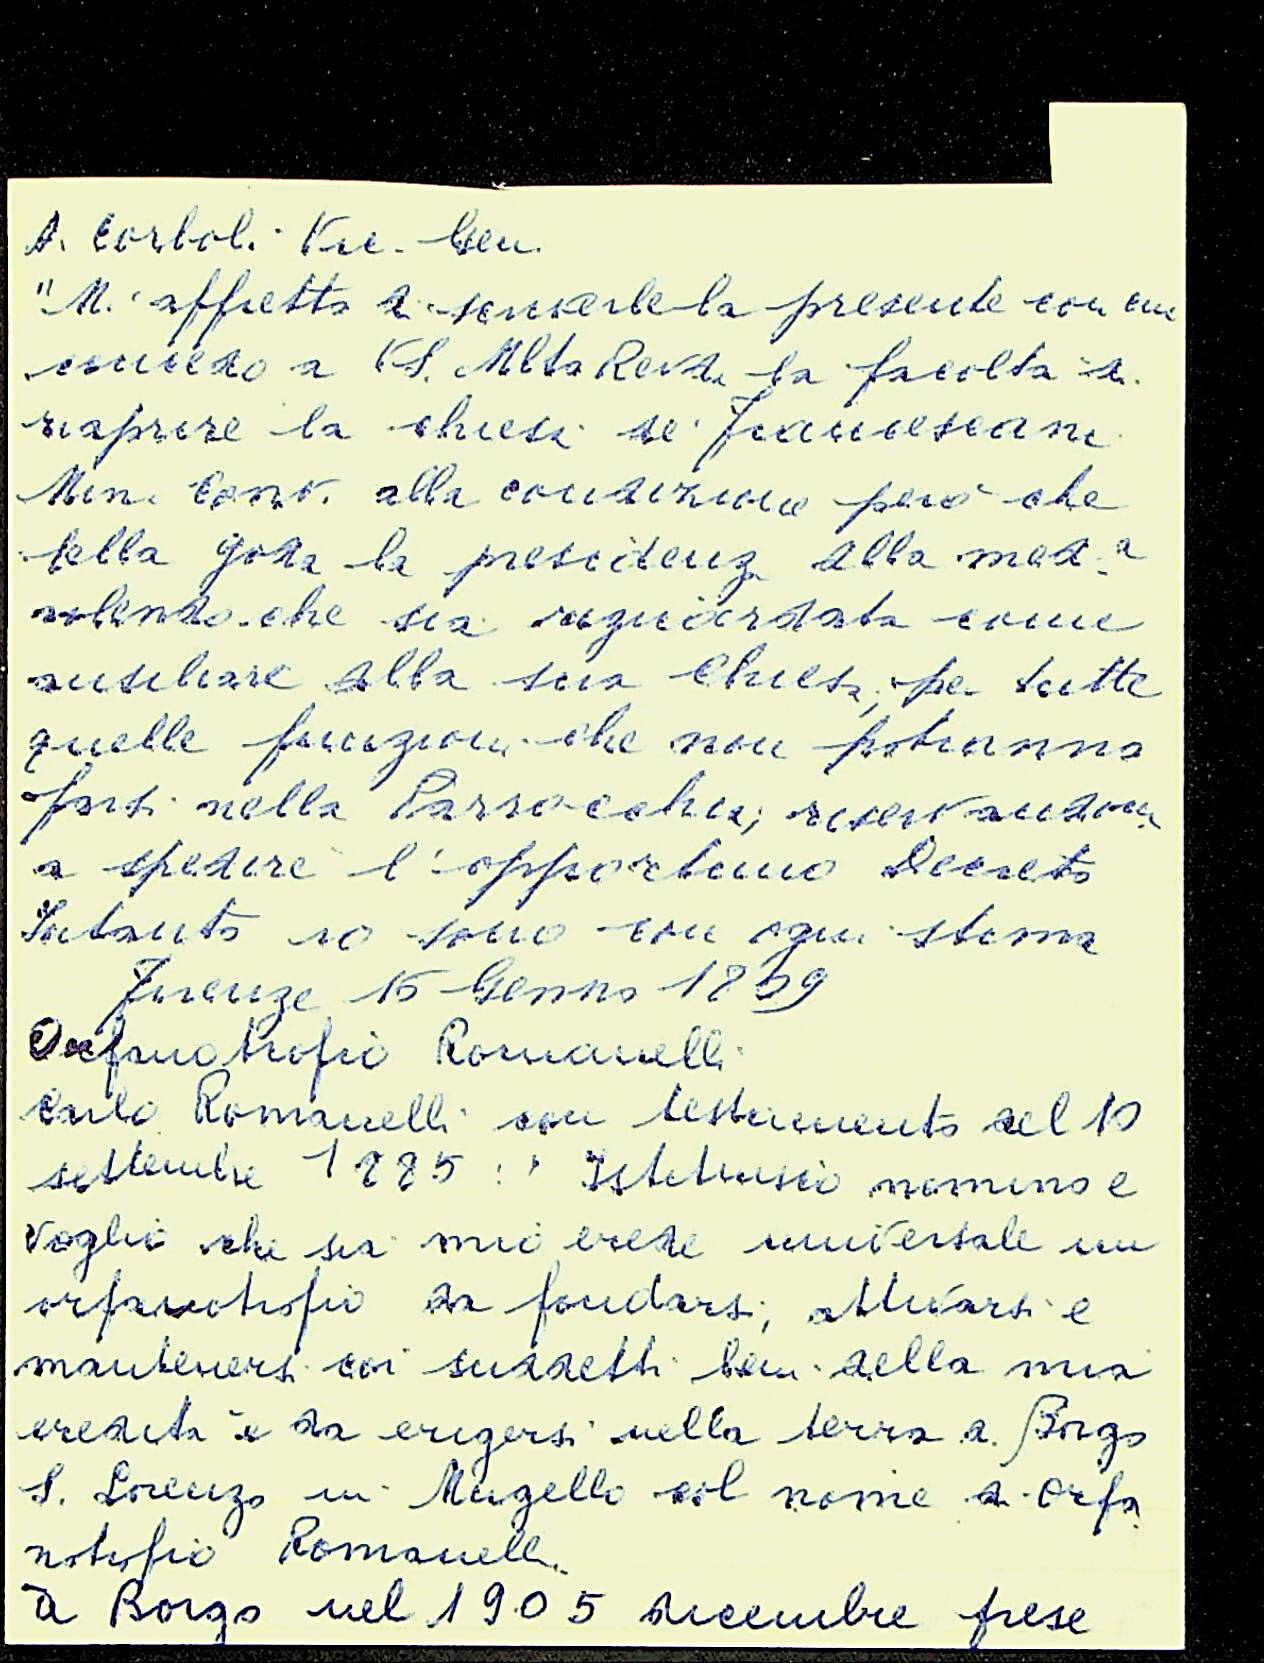 A. Corboli Vic. Gen.
"M'affretto a scriverle la presente con cui
concedo a VS. Mlto Revda la facoltà di
riaprire la chiesa de' Francescani
Min. Conv. alla condizione però che
Ella goda la presidenza della med.a
volendo che sia riguardata come
ausiliare della sua Chiesa, per tutte
quelle funzioni che non potranno
farsi nella Parrocchia; riservandomi
a spedire l'opportuno Decreto
Intanto io sono con ogni stima
Firenze 15 Genno 1809
Orfanotrofio Romanelli
Carlo Romanelli con testamento del 10
settembre 1885: "Istituisco nomino e
voglio che sia mio erede universale un
orfanotrofio da fondarsi, attivarsi e
mantenersi coi suddetti beni della mia
eredità e da erigersi nella terra di Borgo
S. Lorenzo in Mugello col nome di Orfa
notrofio Romanelli.
A Borgo nel 1905 dicembre prese